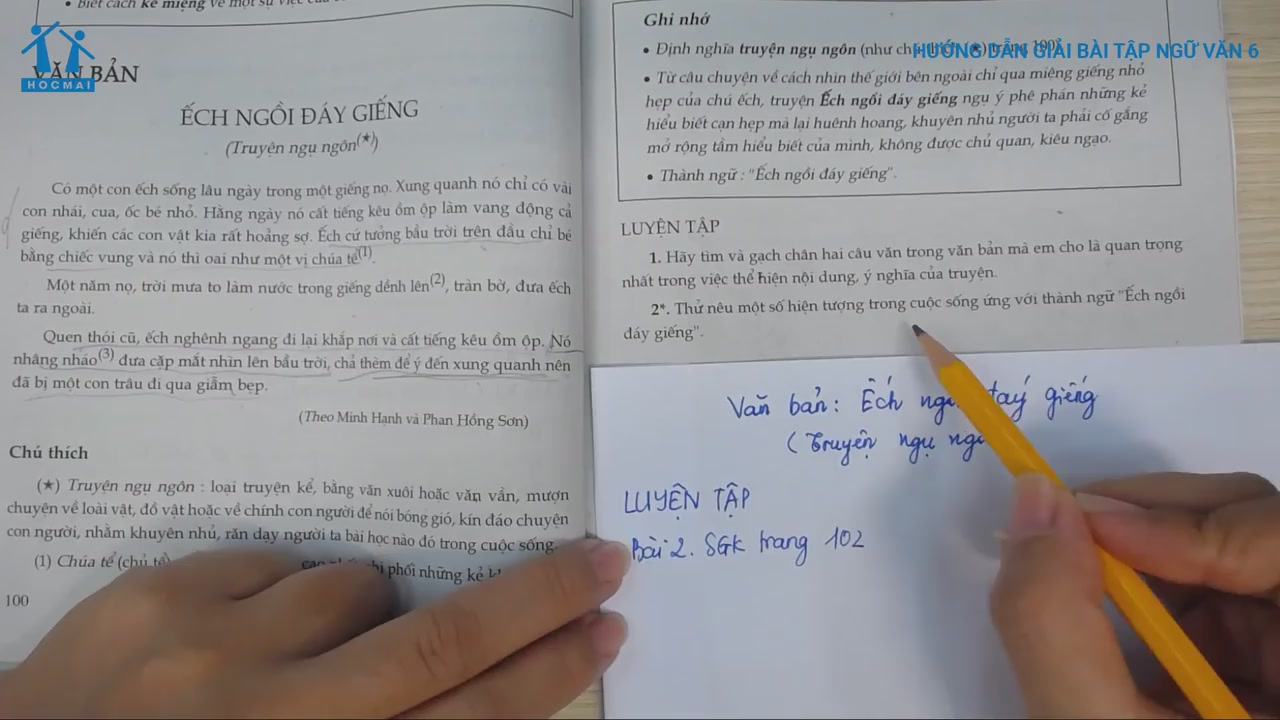 • Biết cách kể miệng về một sự việc của
HOCMAI
VĂN BẢN
ẾCH NGỒI ĐÁY GIẾNG
(Truyện ngụ ngôn(★))
Có một con ếch sống lâu ngày trong một giếng nọ. Xung quanh nó chỉ có vài
con nhái, cua, ốc bé nhỏ. Hằng ngày nó cất tiếng kêu ồm ộp làm vang động cả
giếng, khiến các con vật kia rất hoảng sợ. Ếch cứ tưởng bầu trời trên đầu chỉ bé
bằng chiếc vung và nó thì oai như một vị chúa tể(1).
Một năm nọ, trời mưa to làm nước trong giếng dềnh lên(2), tràn bờ, đưa ếch
ta ra ngoài.
Quen thói cũ, ếch nghênh ngang đi lại khắp nơi và cất tiếng kêu ồm ộp. Nó
nhâng nháo(3) đưa cặp mắt nhìn lên bầu trời, chả thèm để ý đến xung quanh nên
đã bị một con trâu đi qua giẫm bẹp.
(Theo Minh Hạnh và Phan Hồng Sơn)
Chú thích
(★) Truyện ngụ ngôn : loại truyện kể, bằng văn xuôi hoặc văn vần, mượn
chuyện về loài vật, đồ vật hoặc về chính con người để nói bóng gió, kín đáo chuyện
con người, nhằm khuyên nhủ, răn dạy người ta bài học nào đó trong cuộc sống.
(1) Chúa tể (chủ tể) phối những kẻ
100
HƯỚNG DẪN GIẢI BÀI TẬP NGỮ VĂN 6
Ghi nhớ
• Định nghĩa truyện ngụ ngôn (như chú thích (★) trang 100).
• Từ câu chuyện về cách nhìn thế giới bên ngoài chỉ qua miệng giếng nhỏ
hẹp của chú ếch, truyện Ếch ngồi đáy giếng ngụ ý phê phán những kẻ
hiểu biết cạn hẹp mà lại huênh hoang, khuyên nhủ người ta phải cố gắng
mở rộng tầm hiểu biết của mình, không được chủ quan, kiêu ngạo.
• Thành ngữ : "Ếch ngồi đáy giếng".
LUYỆN TẬP
1. Hãy tìm và gạch chân hai câu văn trong văn bản mà em cho là quan trọng
nhất trong việc thể hiện nội dung, ý nghĩa của truyện.
2*. Thử nêu một số hiện tượng trong cuộc sống ứng với thành ngữ "Ếch ngồi
đáy giếng".
Văn bản: Ếch đáy giếng
(Truyện ngụ
LUYỆN TẬP
Bài 2. SGK trang 102